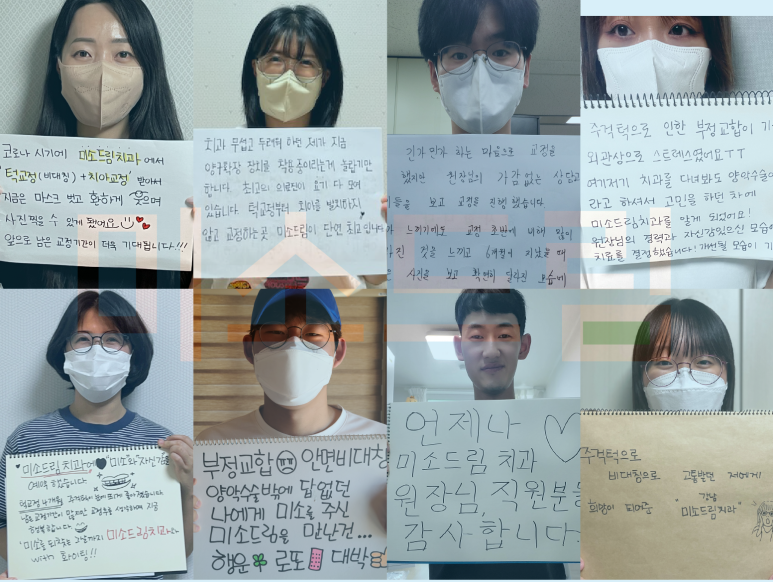 코로나 시기에 미소드림치과에서
턱교정(비대칭) + 치아교정 받아서
지금은 마스크 벗고 환하게 웃으며
사진찍을 수 있게 됐어요
앞으로 남은 교정기간이 더욱 기대됩니다.!!!
치과 무섭고 두려워 하던 제가 지금
악궁확장 장치를 착용중이라는게 놀랍기만
합니다. 최고의 의료진이 요기 다 모여
있습니다. 턱교정부터 치아를 발치하지
않고 교정하는곳 미소드림이 단연 최고입니다
긴가민가 하는 마음으로 교정을
했지만 원장님의 가감없는 상담과
들을 보고 교정을 진행 했습니다
느끼기에도 교정 초반에 비해 많이
진 것을 느끼고 6개월이 지났을 때
사진을 보고 확연히 달라진 모습에
주걱턱으로 인한 부정교합이
외관상으로 스트레스였어요ㅜㅜ
여기저기 치과를 다녀봐도 양악수술이
라고 하셔서 고민을 하던 차에
미소드림치과를 알게 되었어요!
원장님의 경력과 자신감있으신 모습에
치료를 결정했습니다! 개선될 모습이 기
미소드림 치과에 "미소와 자신감을
예약 하였습니다
턱교정 4개월
행복합니다
미소를 되찾는 그날까지 미소드림치과
with 화이팅!!
부정교합 안면비대칭
양악수술밖에 답없던
나에게 미소를 주신
미소드림을 만난건...
행운 로또 대박
언제나
미소드림 치과
원장님, 직원분들
감사합니다.
주걱턱으로
비대칭으로 고통받던 저에게
희망이 피어준 "강남
미소드림치과"
미소드림